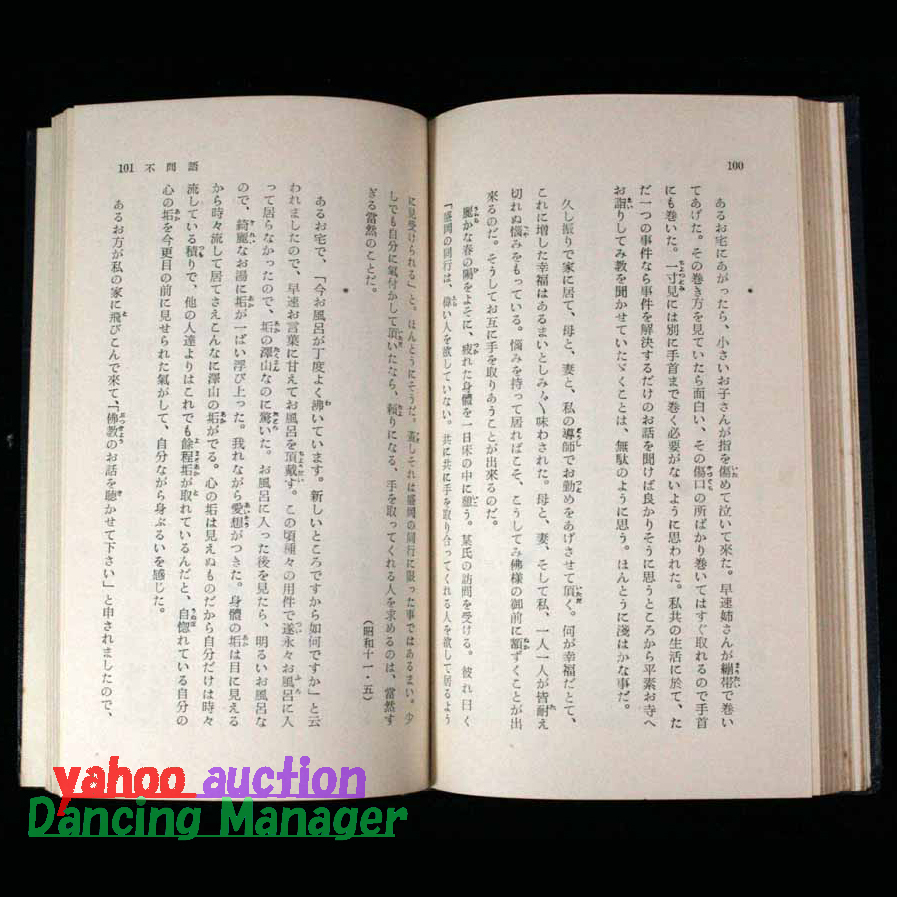 100
＊
あるお宅にあがったら、小さいお子さんが指を傷めて泣いて来た。早速姉さんが繃帯で巻い
てあげた。その巻き方を見ていたら面白い、その傷口の所ばかり巻いてはすぐ取れるので手首
にも巻いた。一寸見には別に手首まで巻く必要がないように思われた。私共の生活に於て、た
だ一つの事件なら事件を解決するだけのお話を聞けば良かりそうに思うところから平素お寺へ
お詣りしてみ教を聞かせていたゞくことは、無駄のように思う。ほんとうに淺はかな事だ。
久し振りで家に居て、母と、妻と、私の導師でお勤めをあげさせて頂く。何が幸福だとて、
これに增した幸福はあるまいとしみ〴〵味わされた。母と、妻、そして私、一人一人が皆耐え
切れぬ惱みをもっている。惱みを持って居ればこそ、こうしてみ佛様の御前に額ずくことが出
來るのだ。そうしてお互に手を取りあうことが出來るのだ。
麗かな春の陽をよそに、疲れた身體を一日床の中に憩う。某氏の訪問を受ける。彼れ曰く
「盛岡の同行は、偉い人を欲していない。共に共に手を取り合ってくれる人を欲して居るよう
101 不問語
に見受けられる」と。ほんとうにそうだ。蓋しそれは盛岡の同行に限った事ではあるまい。少
しでも自分に氣付かして頂いたなら、賴りになる、手を取ってくれる人を求めるのは、當然す
ぎる當然のことだ。
（昭和十一・五）
＊
あるお宅で、「今お風呂が丁度よく沸いています。新しいところですから如何ですか」と云
われましたので、早速お言葉に甘えてお風呂を頂戴す。この頃種々の用件で遂永々お風呂に入
って居らなかったので、垢の澤山なのに驚いた。お風呂に入った後を見たら、明るいお風呂な
ので、綺麗なお湯に垢が一ぱい浮び上った。我れながら愛想がつきた。身體の垢は目に見える
から時々流して居てさえこんなに澤山の垢がでる。心の垢は見えぬものだから自分だけは時々
流している積りで、他の人達よりはこれでも餘程垢が取れているんだと、自惚れている自分の
心の垢を今更目の前に見せられた氣がして、自分ながら身ぶるいを感じた。
あるお方が私の家に飛びこんで來て、「佛教のお話を聽かせて下さい」と申されましたので、
yahoo auction
Dancing Manager